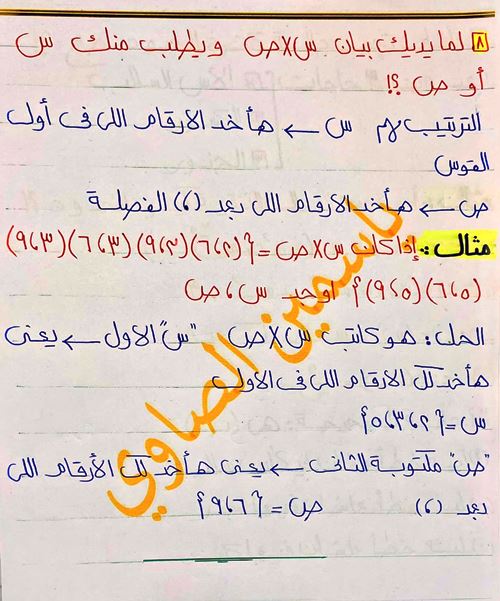 ٨ لما يديك بيان س×ص ويطلب منك س
أو ص ؟!
الترتيب مهم س ← هأخد الأرقام اللى فى أول
القوس
ص ← هأخد الأرقام اللى بعد (،) الفصلة
مثال: إذا كان س×ص = {(٢،٦)(٢،٩)(٣،٦)(٣،٩)
(٥،٦)(٥،٩)} أوجد س ، ص
الحل: هو كاتب س×ص "س" الأول ← يعنى
هأخد كل الأرقام اللى فى الأول
س = {٢،٣،٥}
"ص" مكتوبة الثانى ← يعنى هأخد كل الأرقام اللى
بعد (،) ص = {٦،٩}
ياسمين الصاوي